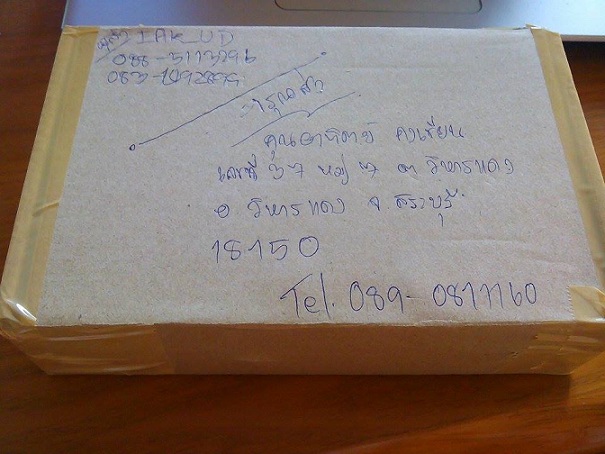 ผู้ส่ง IAK_UD
088-5113296
กรุณาส่ง
คุณอาทิตย์ คงเขียน
เลขที่ หมู่ ๒ ต วิหารแดง
อ วิหารแดง จ สระบุรี
18150
Tel. 089-0811160